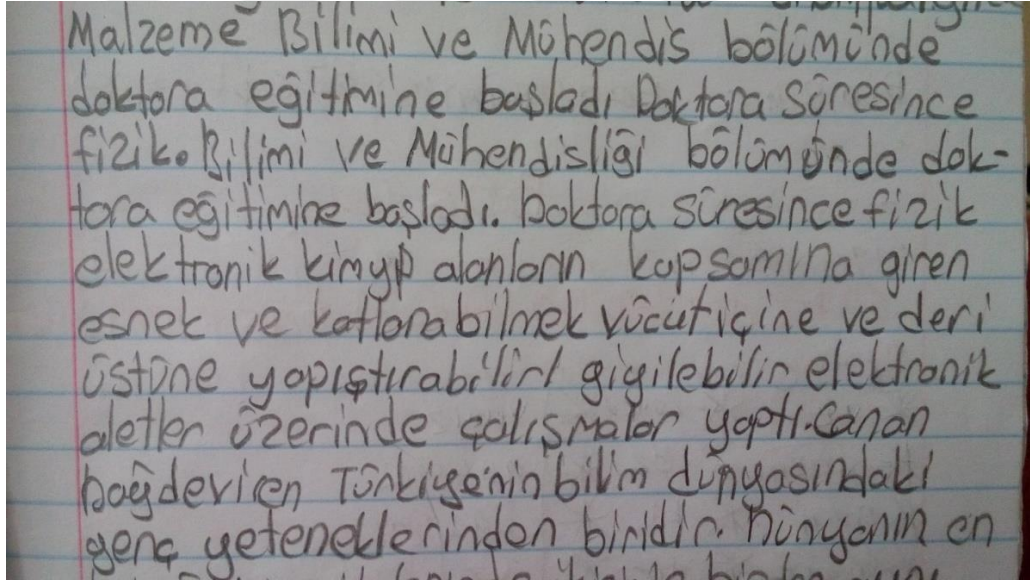 Malzeme Bilimi ve Mühendis bölümünde
doktora eğitimine başladı Doktora süresince
fizik. Bilimi ve Mühendisliği bölümünde dok-
tora eğitimine başladı. Doktora süresince fizik
elektronik kimya alanların kapsamına giren
esnek ve katlanabilmek vücut içine ve deri
üstüne yapıştırabilirl giyilebilir elektronik
aletler üzerinde çalışmalar yaptı. Canan
Dağdeviren Türkiye'nin bilim dünyasındaki
genç yeteneklerinden biridir. Dünyanın en